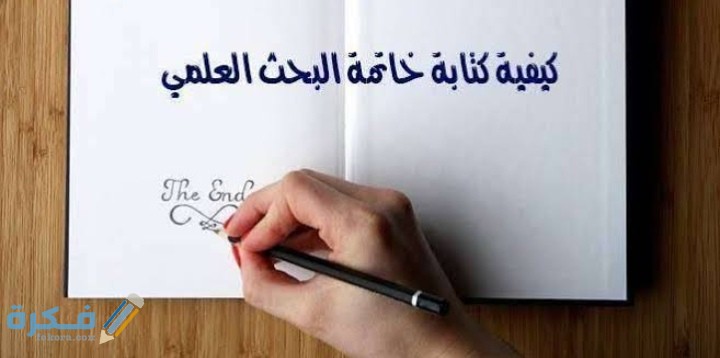 كيفية كتابة خاتمة البحث العلمي
The End
فكرة
fekera.com